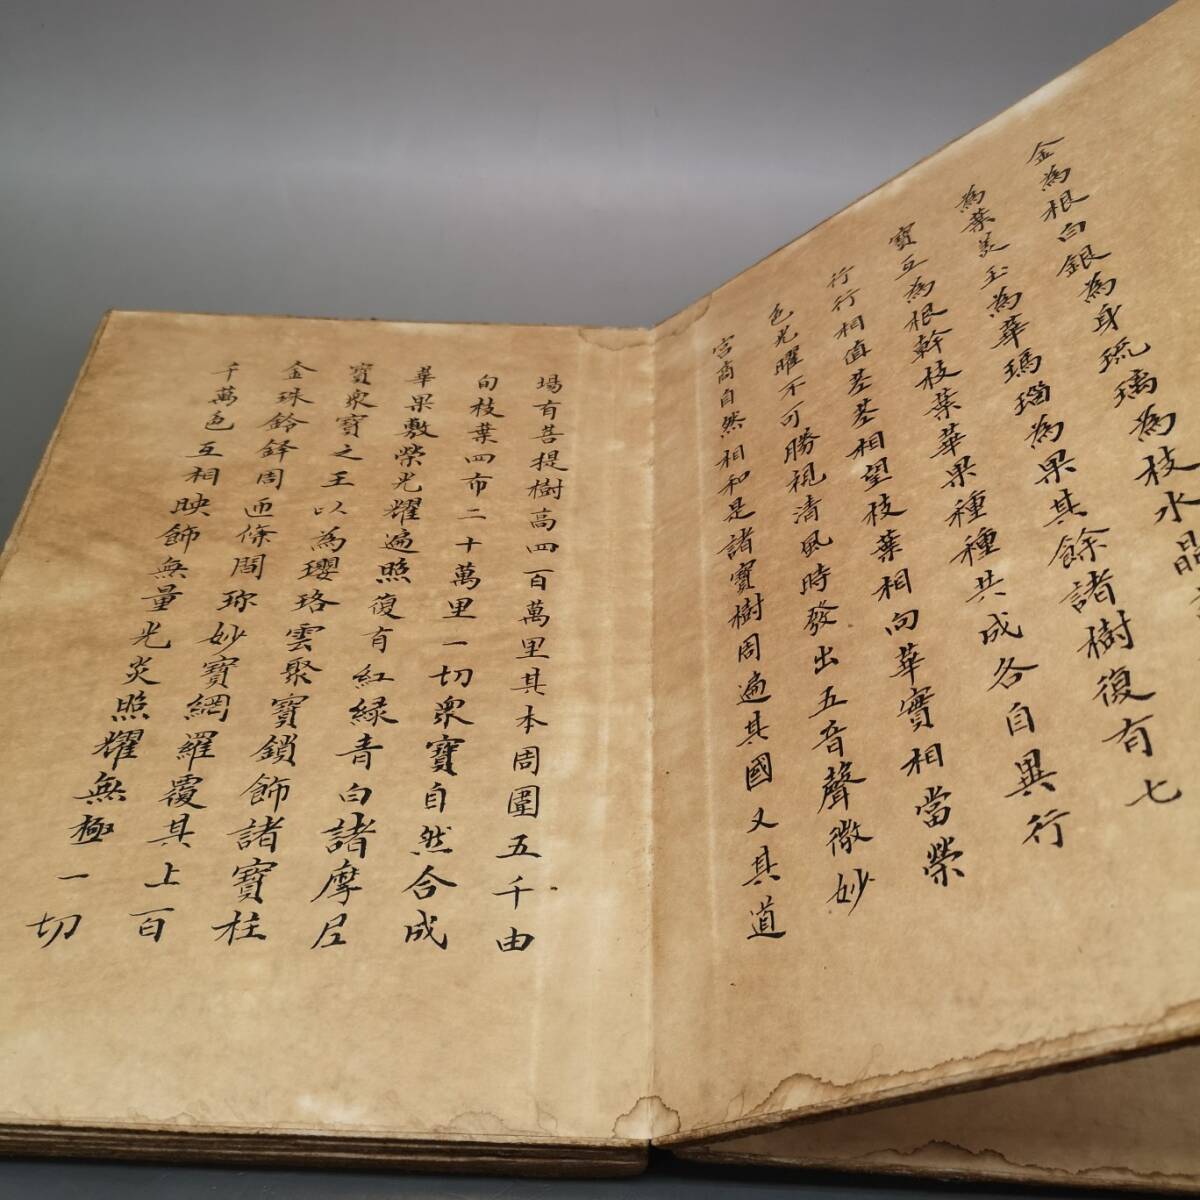 金為根白銀為身琉璃為枝水晶
為葉美玉為華瑪瑙為果其餘諸樹復有七
寶互為根幹枝葉華果種種共成各自異行
行行相值莖莖相望枝葉相向華實相當榮
色光曜不可勝視清風時發出五音聲微妙
宮商自然相和是諸寶樹周遍其國又其道
場有菩提樹高四百萬里其本周圍五千由
旬枝葉四布二十萬里一切衆寶自然合成
華果敷榮光耀遍照復有紅緑青白諸摩尼
寶衆寶之王以為瓔珞雲聚寶鎖飾諸寶柱
金珠鈴鐸周匝條間珎妙寶網羅覆其上百
千萬色互相映飾無量光炎照耀無極一切